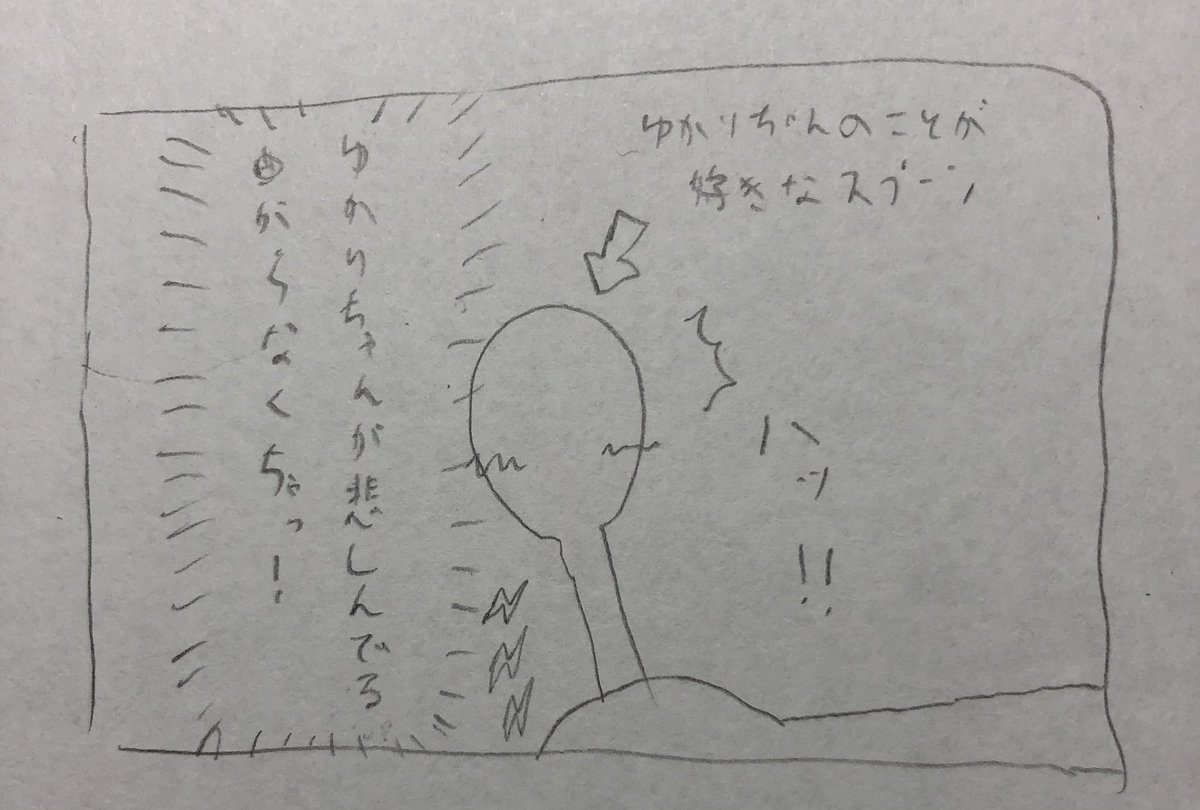 ゆかりちゃんのことが
好きなスプーン
ハッ!!
ゆかりちゃんが悲しんでる
曲がらなくちゃっ!